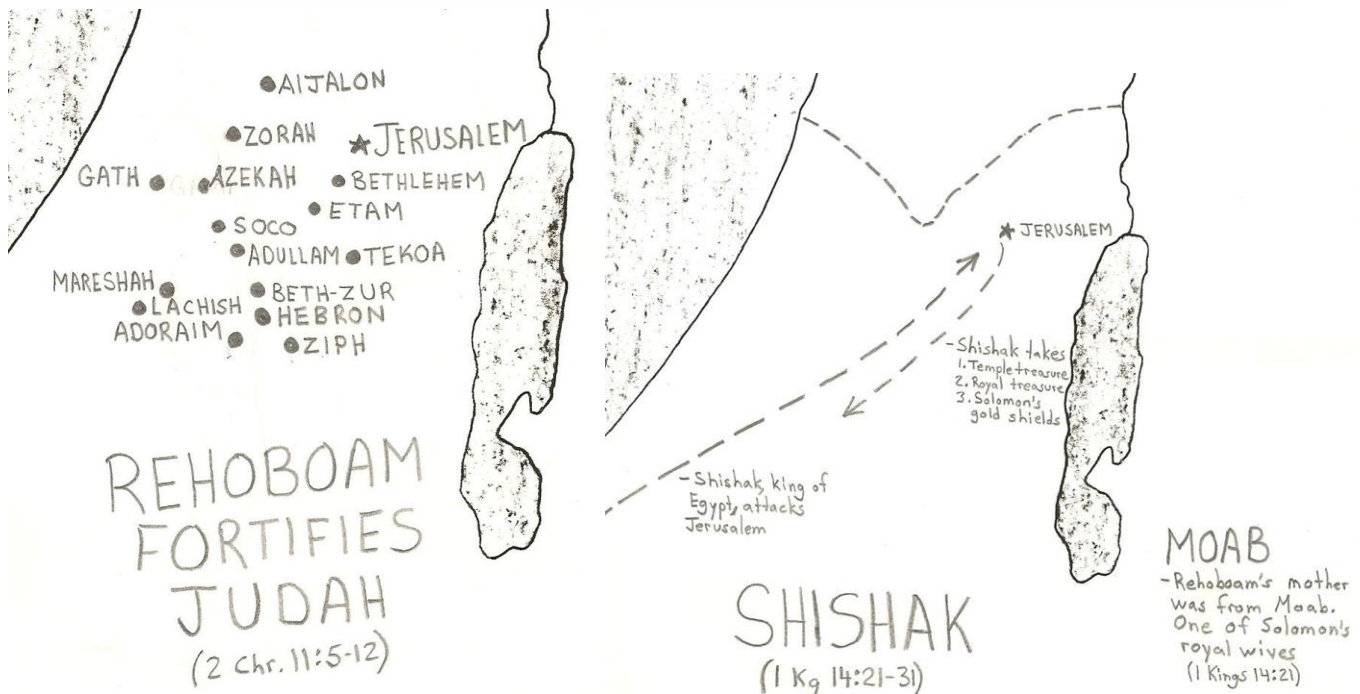 AIJALON
ZORAH
JERUSALEM
GATH
AZEKAH
BETHLEHEM
ETAM
SOCO
ADULLAM
TEKOA
MARESHAH
BETH-ZUR
LACHISH
HEBRON
ADORAIM
ZIPH
REHOBOAM
FORTIFIES
JUDAH
(2 Chr. 11:5-12)
JERUSALEM
-Shishak takes
1. Temple treasure
2. Royal treasure
3. Solomon's
gold shields
-Shishak, king of
Egypt, attacks
Jerusalem
SHISHAK
(1 Kg 14:21-31)
MOAB
-Rehoboam's mother
was from Moab.
One of Solomon's
royal wives
(1 Kings 14:21)